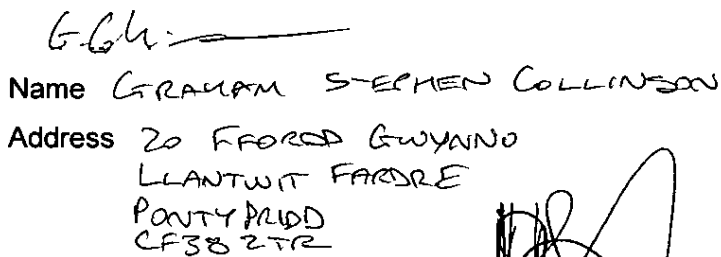 Name GRAHAM STEPHEN COLLINSON
Address 20 FFORDD GWYNNO
LLANTWIT FARDRE
PONTYPRIDD
CF38 2TR